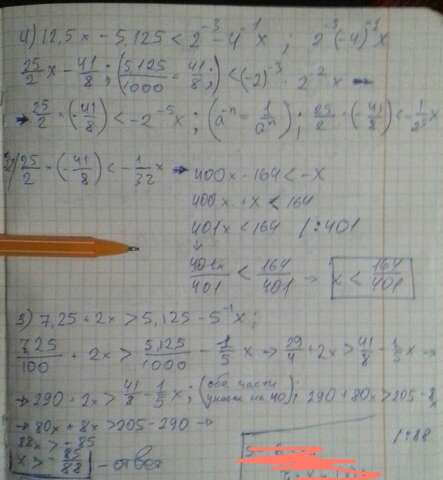 4) 12,5x - 5,125 < 2⁻³ - 4⁻¹x ; 2⁻³(-4)⁻¹x
25/2 x - 41/8 ; (5,125/1000 = 41/8 ;) < (-2)⁻³ · 2⁻²x →
→ 25/2 · (-41/8) < -2⁻⁵x ; (a⁻ⁿ = 1/aⁿ) ; 25/2 · (-41/8) < -1/2⁵x
25/2 · (-41/8) < -1/32 x → 400x - 164 < -x
400x + x < 164
401x < 164 / : 401
↓
401x/401 < 164/401 → x < 164/401
3) 7,25 + 2x > 5,125 - 5⁻¹x ;
7,25/100 + 2x > 5,125/1000 - 1/5 x → 29/4 + 2x > 41/8 - 1/5 x →
→ 290 + 2x > 41/8 - 1/5 x ; (обе части умнож на 40) ; 290 + 80x > 205 - 8
→ 80x + 8x > 205 - 290 →
88x > -85 / : 88
x > -85/88 - ответ